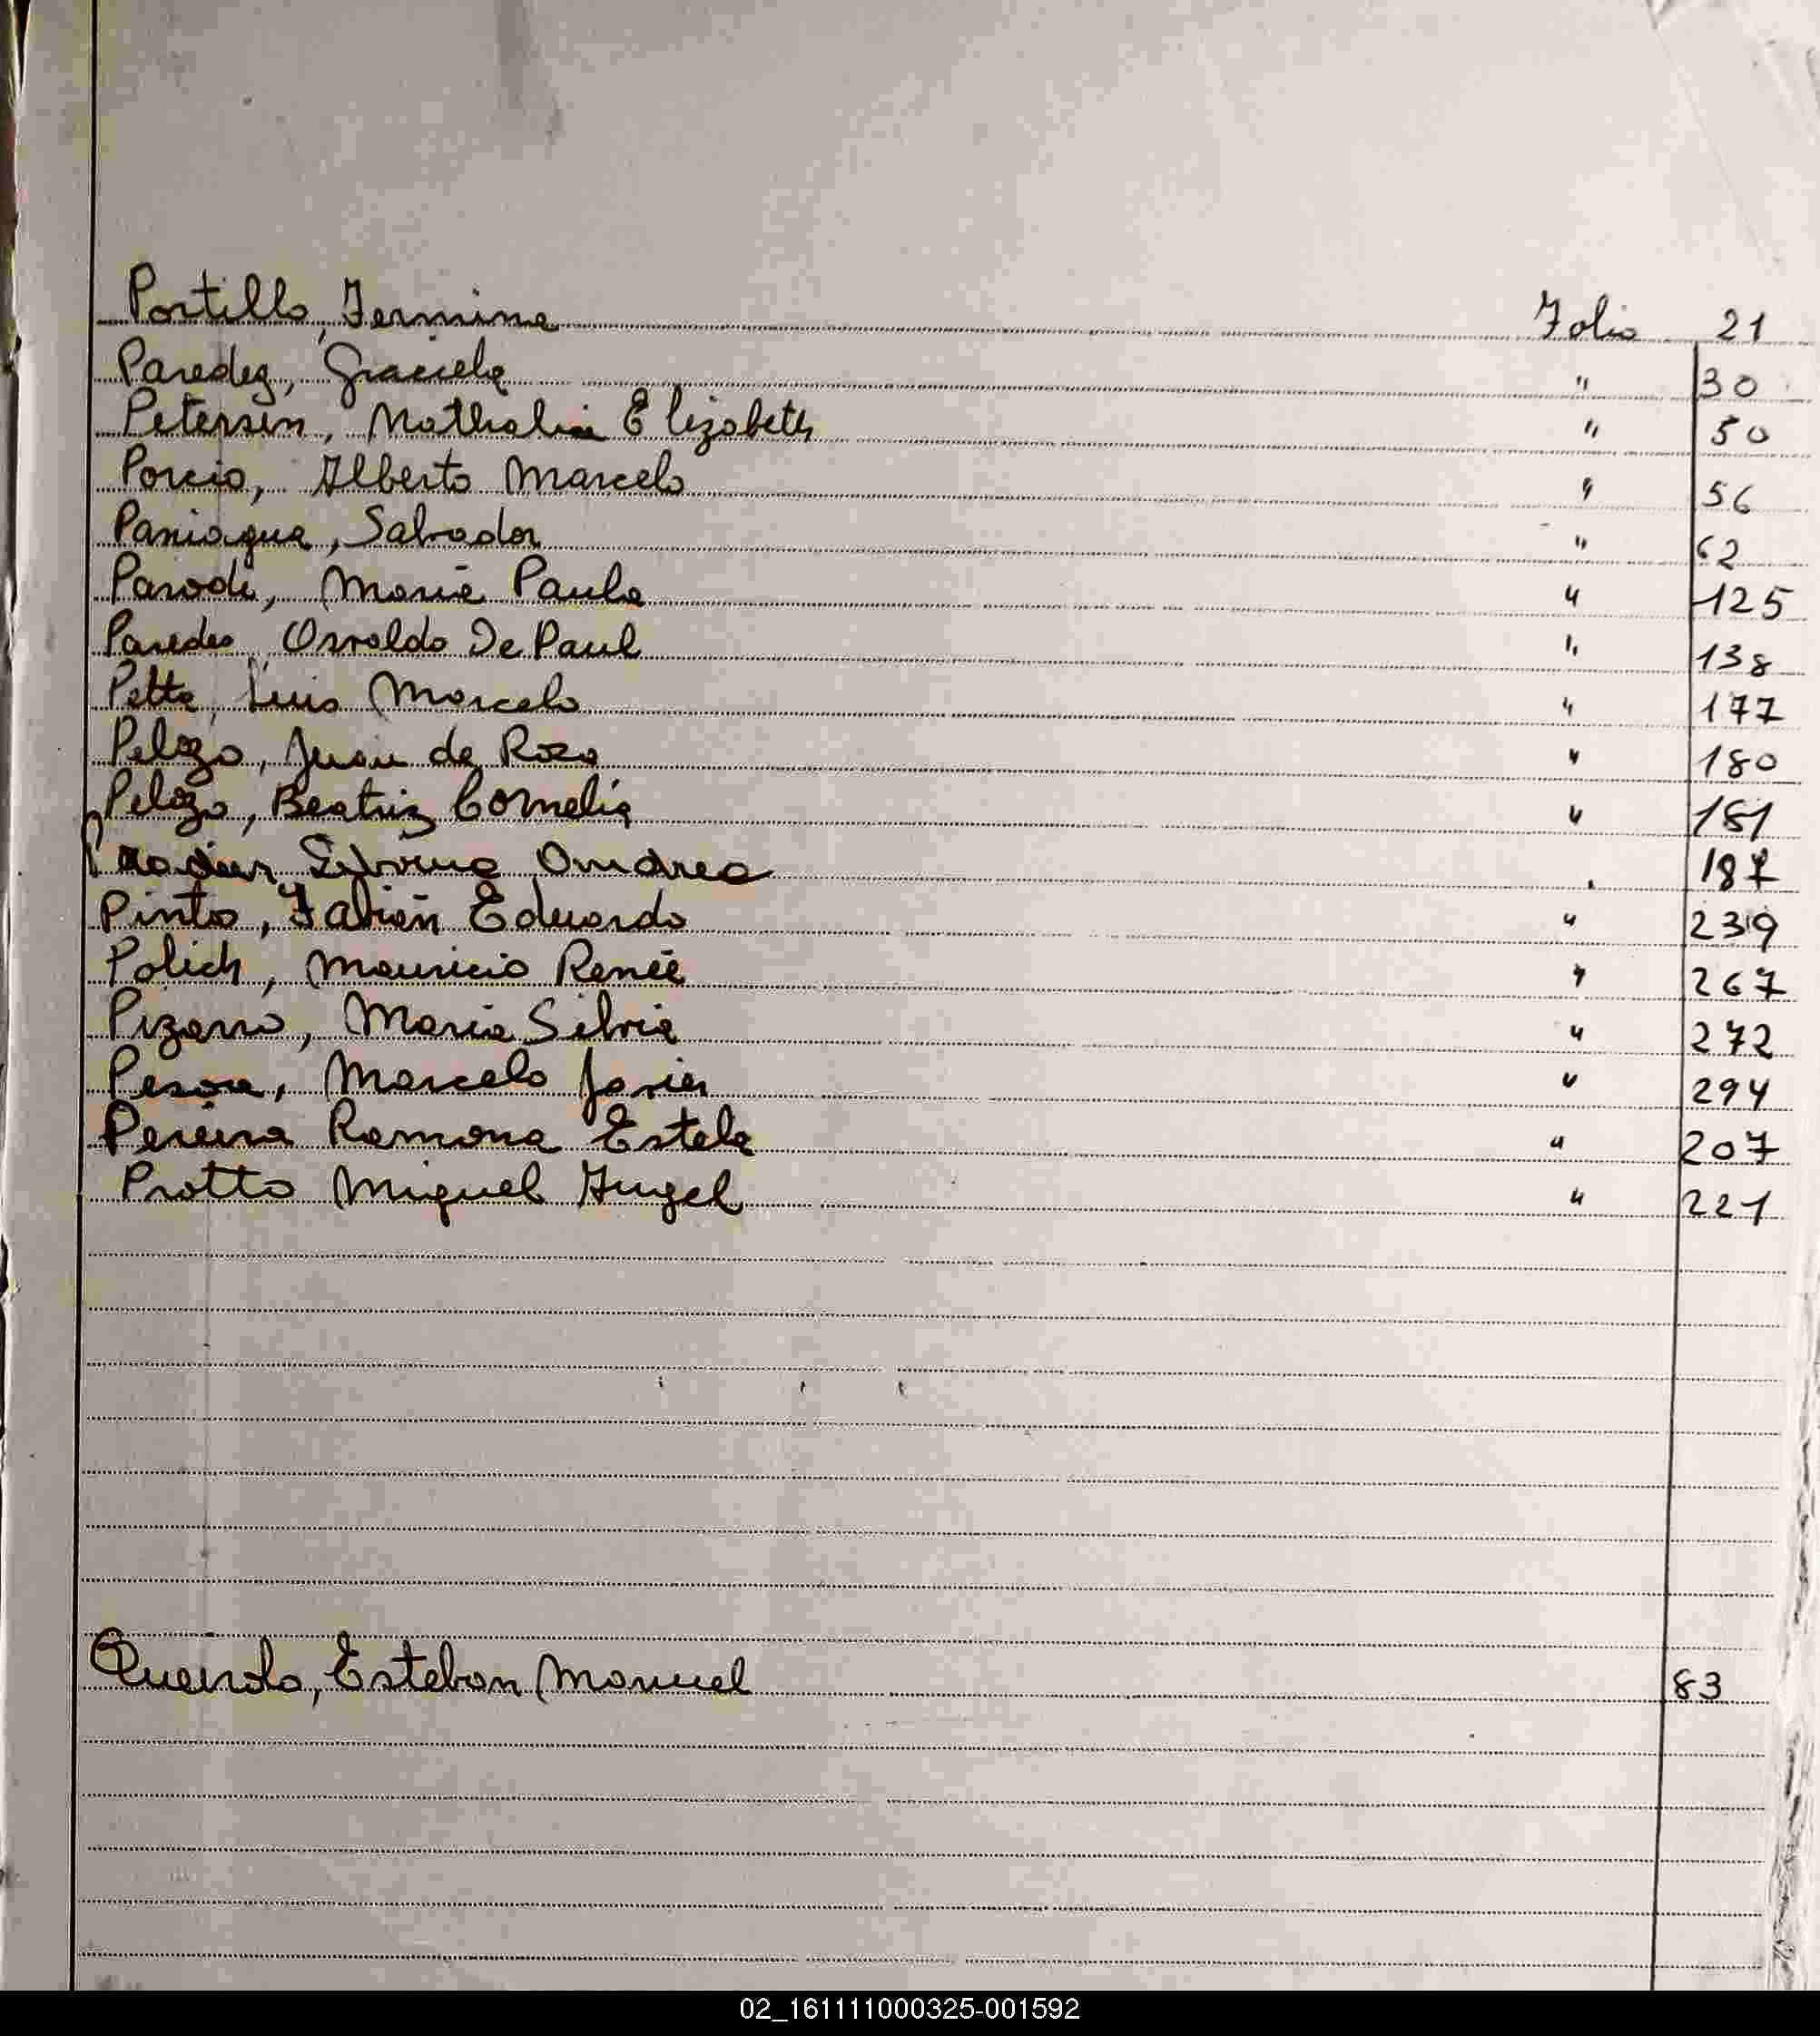 Portillo, Fermina Folio 21
Paredez, Graciela " 30
Petersen, Nathalia Elizabeth " 50
Porcio, Alberto Marcelo " 56
Paniagua, Salvador " 62
Parodi, Maria Paula " 125
Paredes, Osvaldo De Paul " 138
Petta, Luis Marcelo " 177
Pelozo, Juan de Rosa " 180
Pelozo, Beatriz Cornelia " 181
Silvina Andrea 187
Pinto, Fabián Eduardo " 239
Polich, Mauricio Reneé " 267
Pizarro, Maria Silvia " 272
Pesoa, Marcelo Javier " 294
Pereira Ramona Estela " 207
Protto Miguel Angel " 221
Queirolo, Esteban Manuel 83
02_161111000325-001592